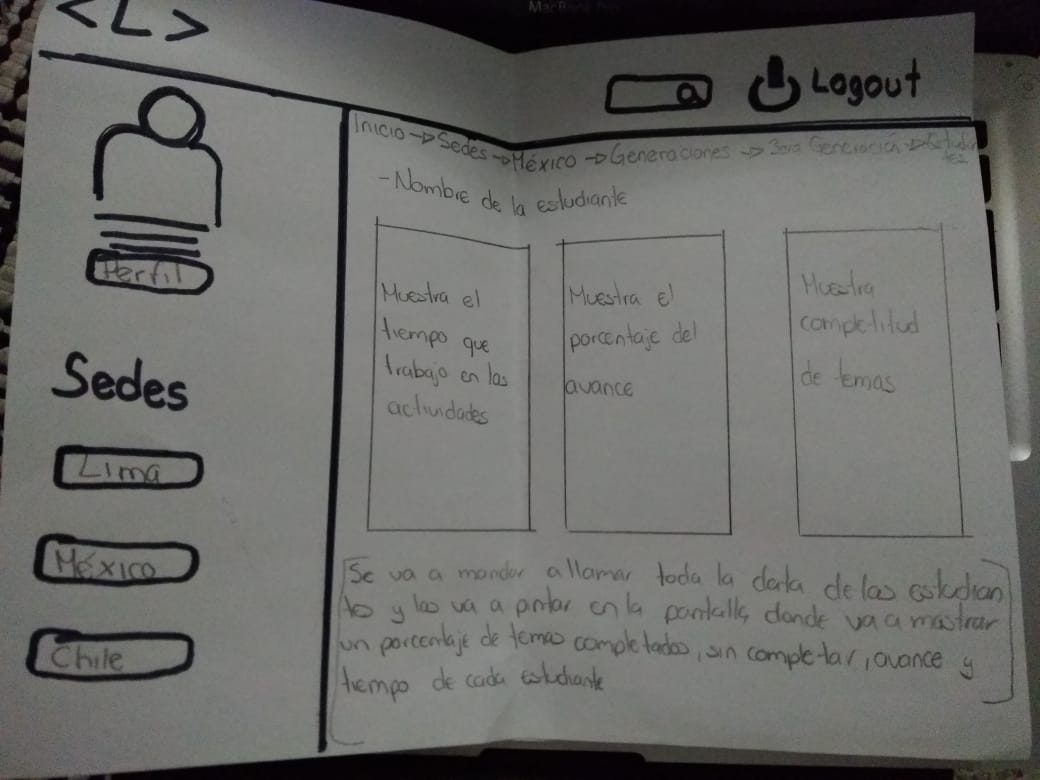 MacBook Pro
<L>
Logout
Inicio → Sedes → México → Generaciones → 3ra Generación → Estudiantes
- Nombre de la estudiante
Perfil
Muestra el
tiempo que
trabajo en las
actividades
Muestra el
porcentaje del
avance
Muestra
completitud
de temas
Sedes
Lima
México
Chile
Se va a mandar a llamar toda la data de las estudian
tes y las va a pintar en la pantalla, donde va a mostrar
un porcentaje de temas completados, sin completar, avance y
tiempo de cada estudiante